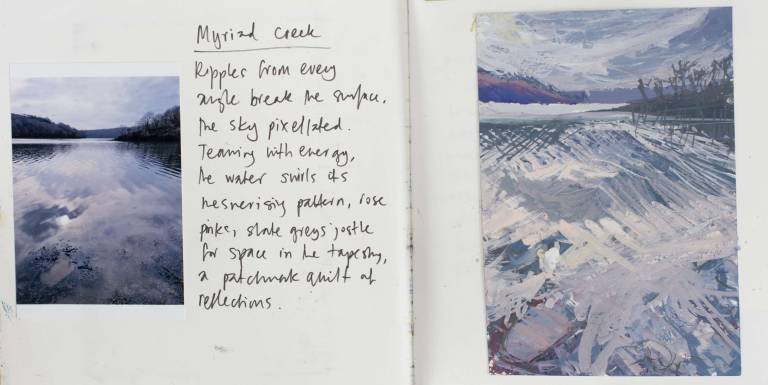 Myriad Creek
Ripples from every
angle break the surface.
The sky pixellated.
Teaming with energy,
the water swirls its
mesmerising pattern, rose
pinks, slate greys jostle
for space in the tapestry,
a patchwork quilt of
reflections.